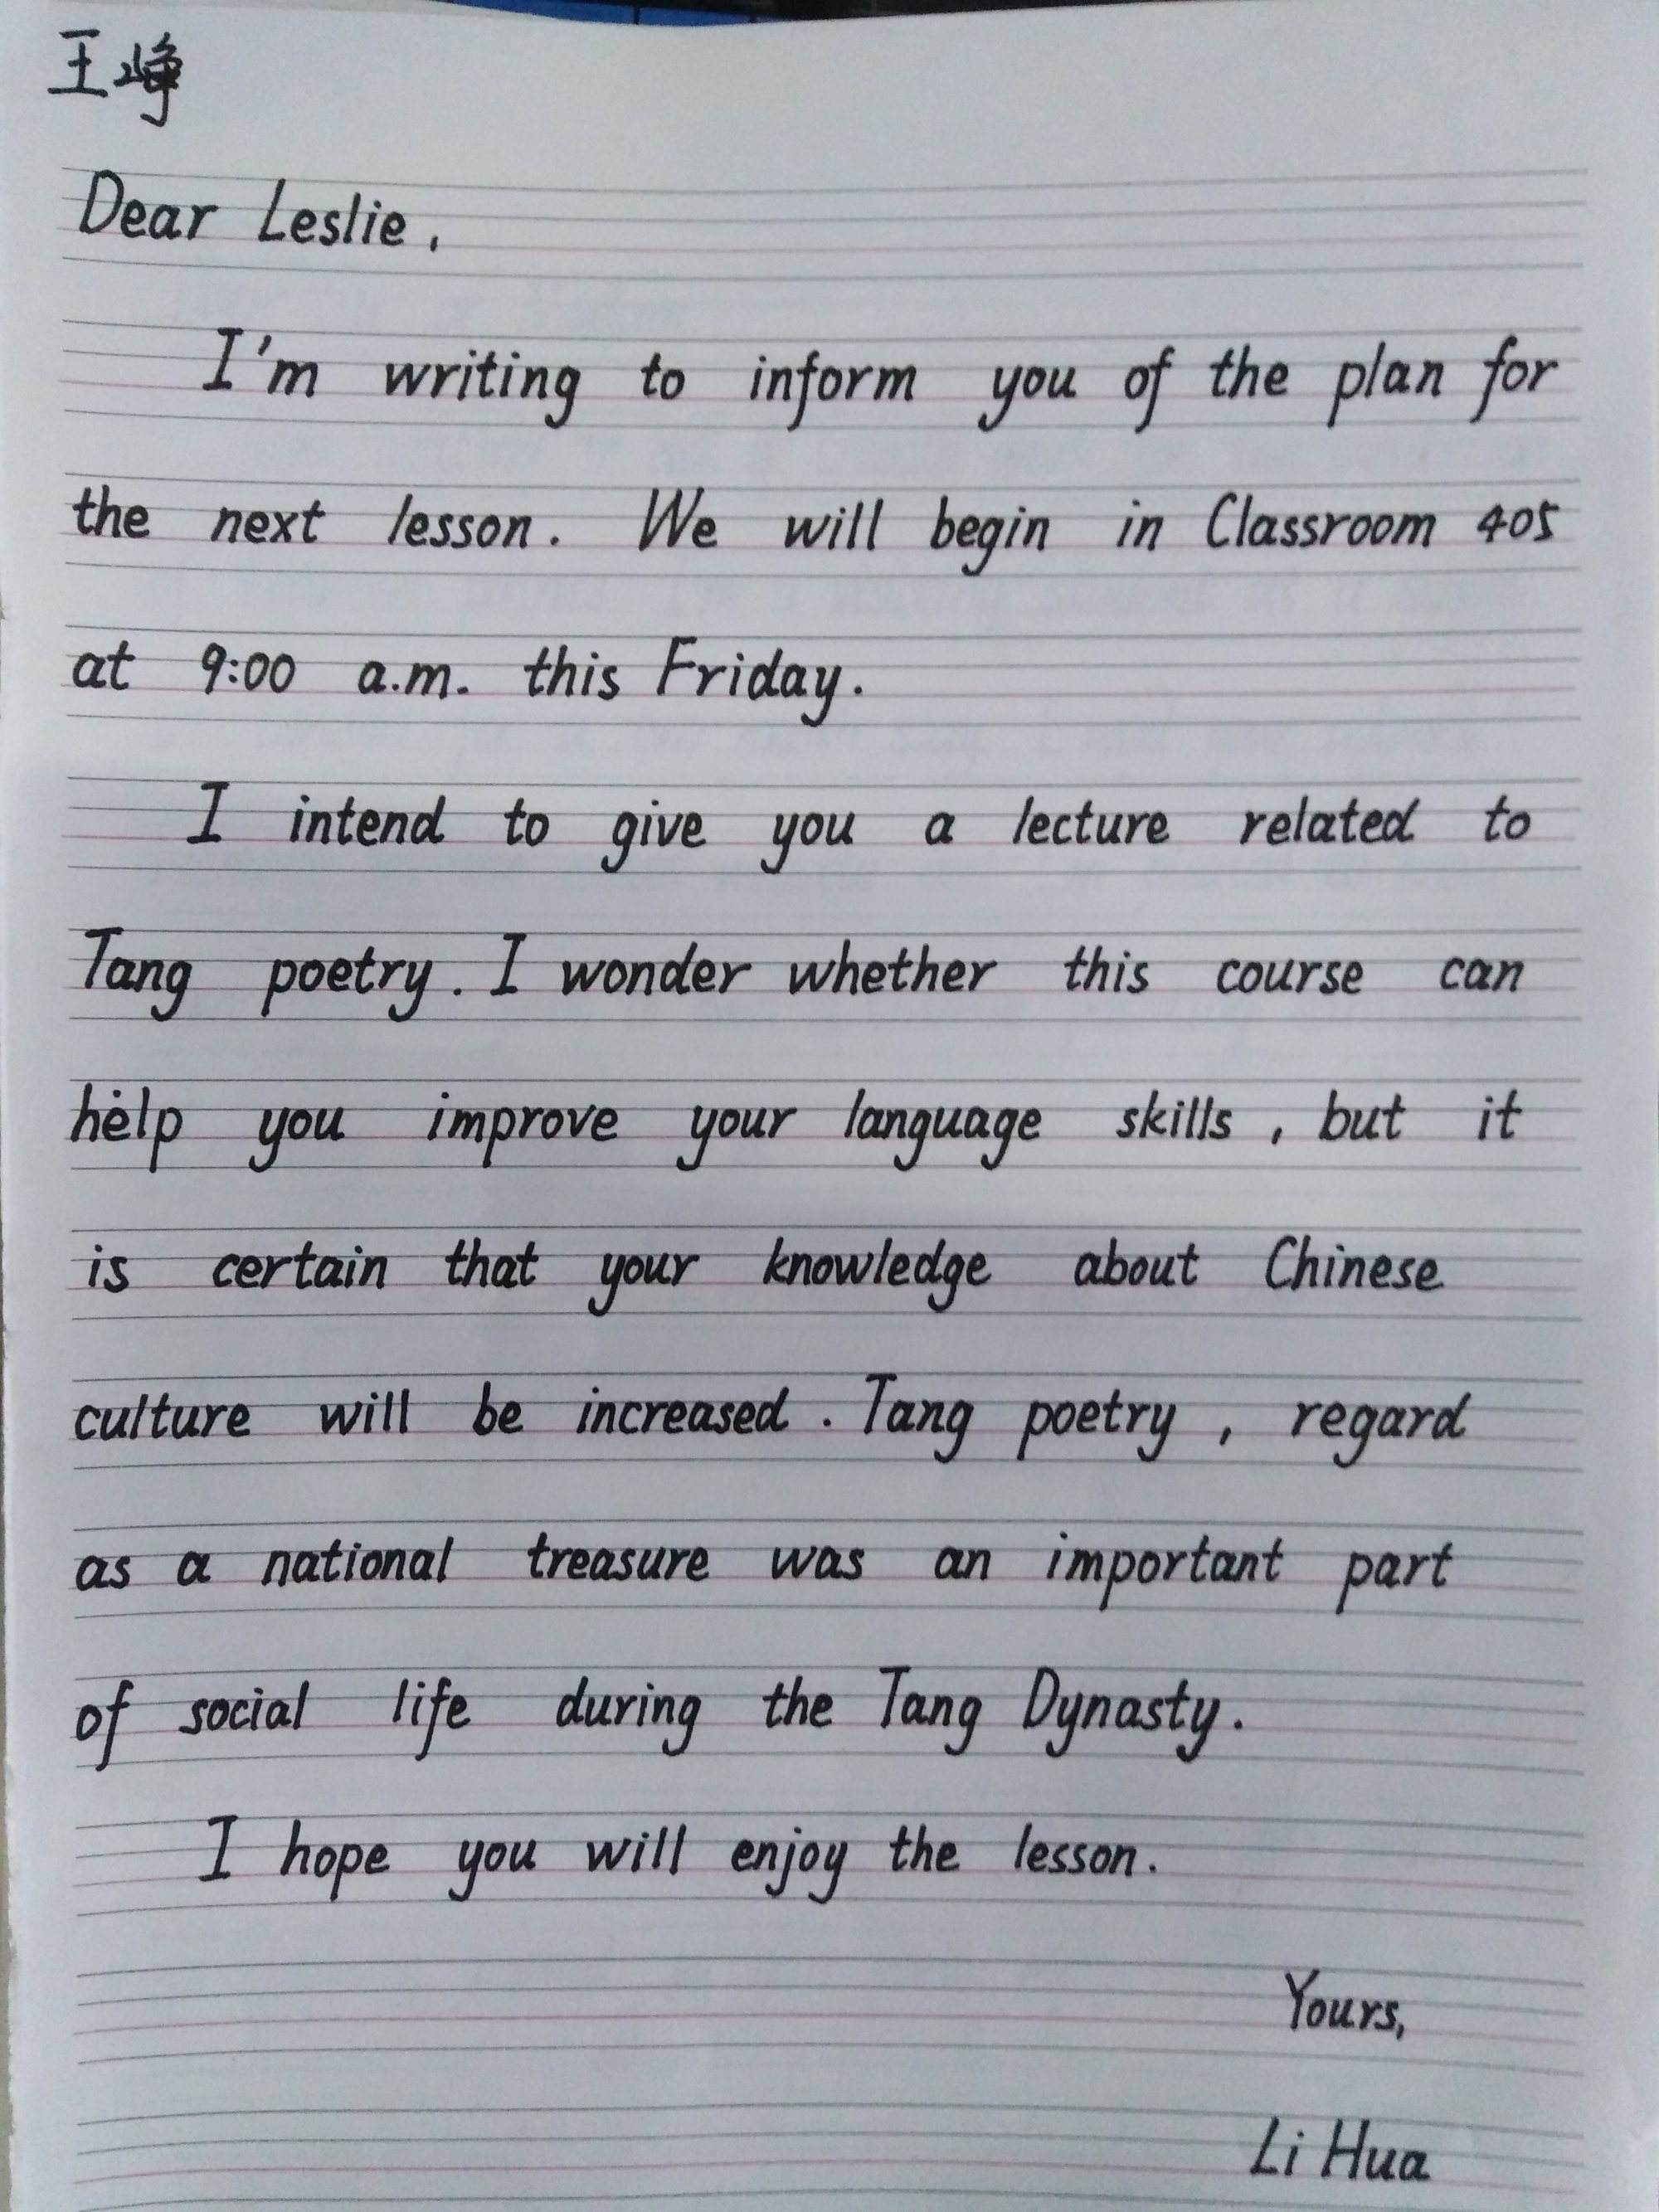 王峥
Dear Leslie,
I'm writing to inform you of the plan for
the next lesson. We will begin in Classroom 405
at 9:00 a.m. this Friday.
I intend to give you a lecture related to
Tang poetry. I wonder whether this course can
help you improve your language skills, but it
is certain that your knowledge about Chinese
culture will be increased. Tang poetry, regard
as a national treasure was an important part
of social life during the Tang Dynasty.
I hope you will enjoy the lesson.
Yours,
Li Hua